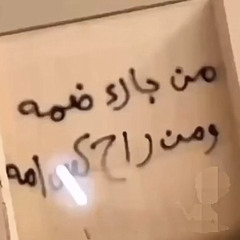 من جاك ضمه
ومن راح كس امه